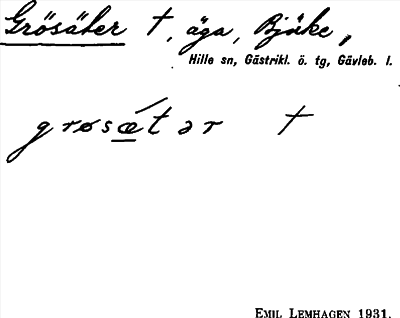 Grösäter †, äga, Bjuke,
Hille sn, Gästrikl. ö. tg, Gävleb. l.
grøsǽtər †
EMIL LEMHAGEN 1931.